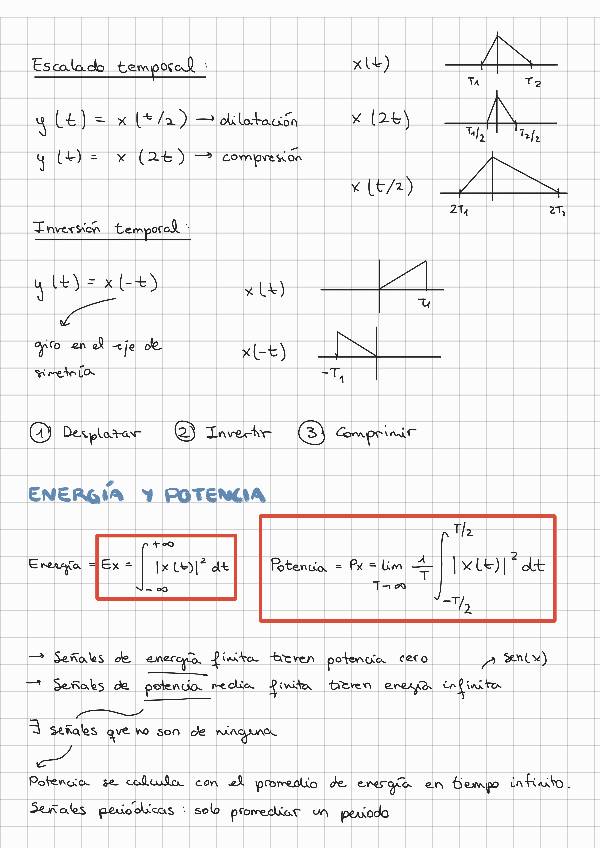 Escalado temporal:
x(t)
T1 T2
y(t) = x(t/2) → dilatación
x(2t)
T1/2 T2/2
y(t) = x(2t) → compresión
x(t/2)
2T1 2T2
Inversión temporal:
y(t) = x(-t)
x(t)
T1
giro en el eje de
simetría
x(-t)
-T1
① Desplazar ② Invertir ③ Comprimir
ENERGÍA Y POTENCIA
Energía = Ex = ∫_{-∞}^{+∞} |x(t)|² dt
Potencia = Px = lim_{T→∞} 1/T ∫_{-T/2}^{T/2} |x(t)|² dt
→ Señales de energía finita tienen potencia cero
→ sen(x)
→ Señales de potencia media finita tienen energía infinita
∃ señales que no son de ninguna
Potencia se calcula con el promedio de energía en tiempo infinito.
Señales periódicas: solo promediar un periodo